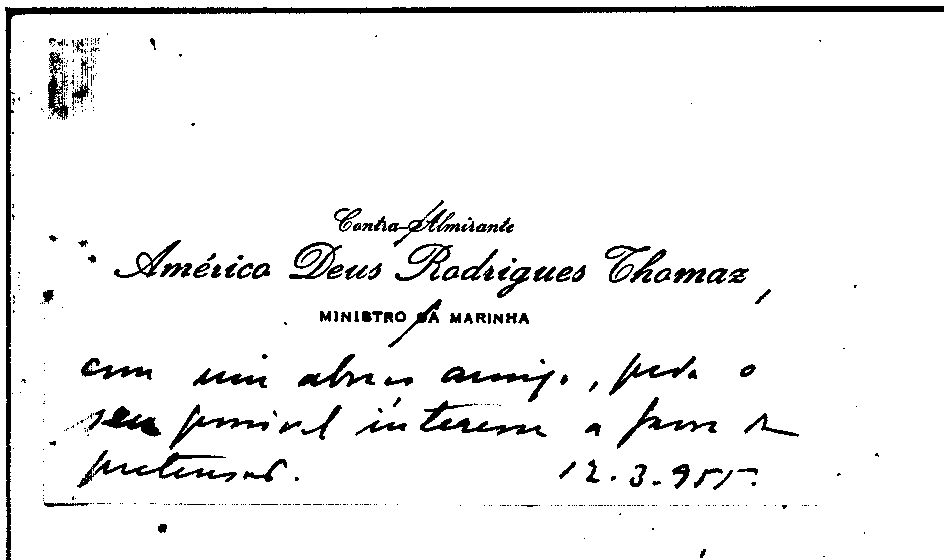 Contra-Almirante
Américo Deus Rodrigues Thomaz,
MINISTRO DA MARINHA
com um abraço amigo, pede o
seu possível interesse a favor da
pretensão. 12.3.955.